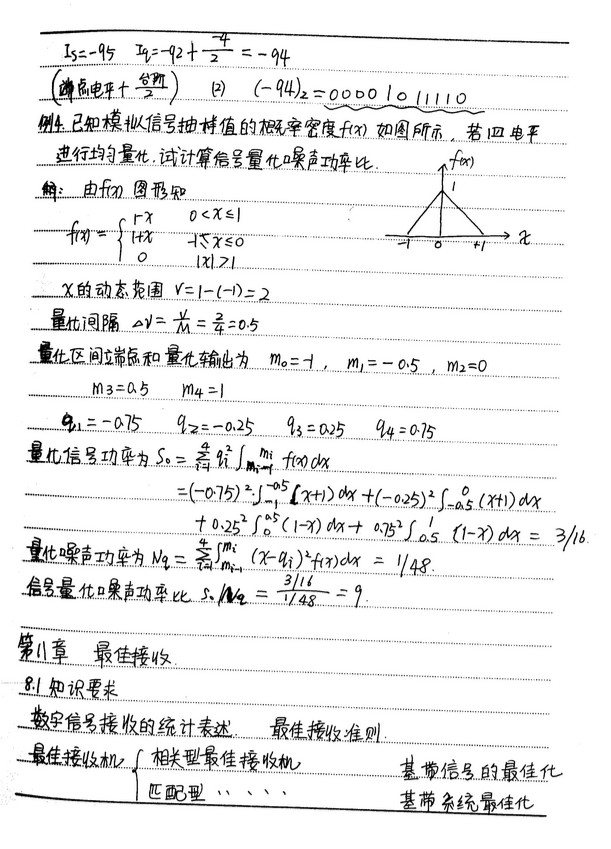 Is=-95 Iq=-92+ -4/2 = -94
(端点电平+ 台阶/2) (2) (-94)₂=00001011110
例4. 已知模拟信号抽样值的概率密度f(x) 如图所示, 若四电平
进行均匀量化, 试计算信号量化噪声功率比.
f(x)
1
-1 0 +1 x
解: 由f(x) 图形知
f(x) = { 1-x 0<x≤1
1+x -1≤x≤0
0 |x|>1
x的动态范围 V=1-(-1)=2
量化间隔 ΔV= V/M = 2/4 =0.5
量化区间端点和量化输出为 m₀=-1, m₁=-0.5, m₂=0
m₃=0.5 m₄=1
q₁=-0.75 q₂=-0.25 q₃=0.25 q₄=0.75
量化信号功率为 S₀ = Σ_{i=1}^{4} qᵢ² ∫_{mᵢ₋₁}^{mᵢ} f(x)dx
=(-0.75)²·∫_{-1}^{-0.5} (x+1) dx +(-0.25)² ∫_{-0.5}^{0} (x+1)dx
+ 0.25² ∫_{0}^{0.5} (1-x)dx+ 0.75² ∫_{0.5}^{1} (1-x) dx = 3/16
量化噪声功率为 Nq = Σ_{i=1}^{4} ∫_{mᵢ₋₁}^{mᵢ} (x-qᵢ)² f(x)dx = 1/48.
信号量化噪声功率比 S₀/Nq = (3/16)/(1/48) = 9.
第11章 最佳接收.
8.1 知识要求
数字信号接收的统计表述. 最佳接收准则.
最佳接收机 { 相关型最佳接收机 基带信号的最佳化
匹配型 、、、、、 基带系统最佳化